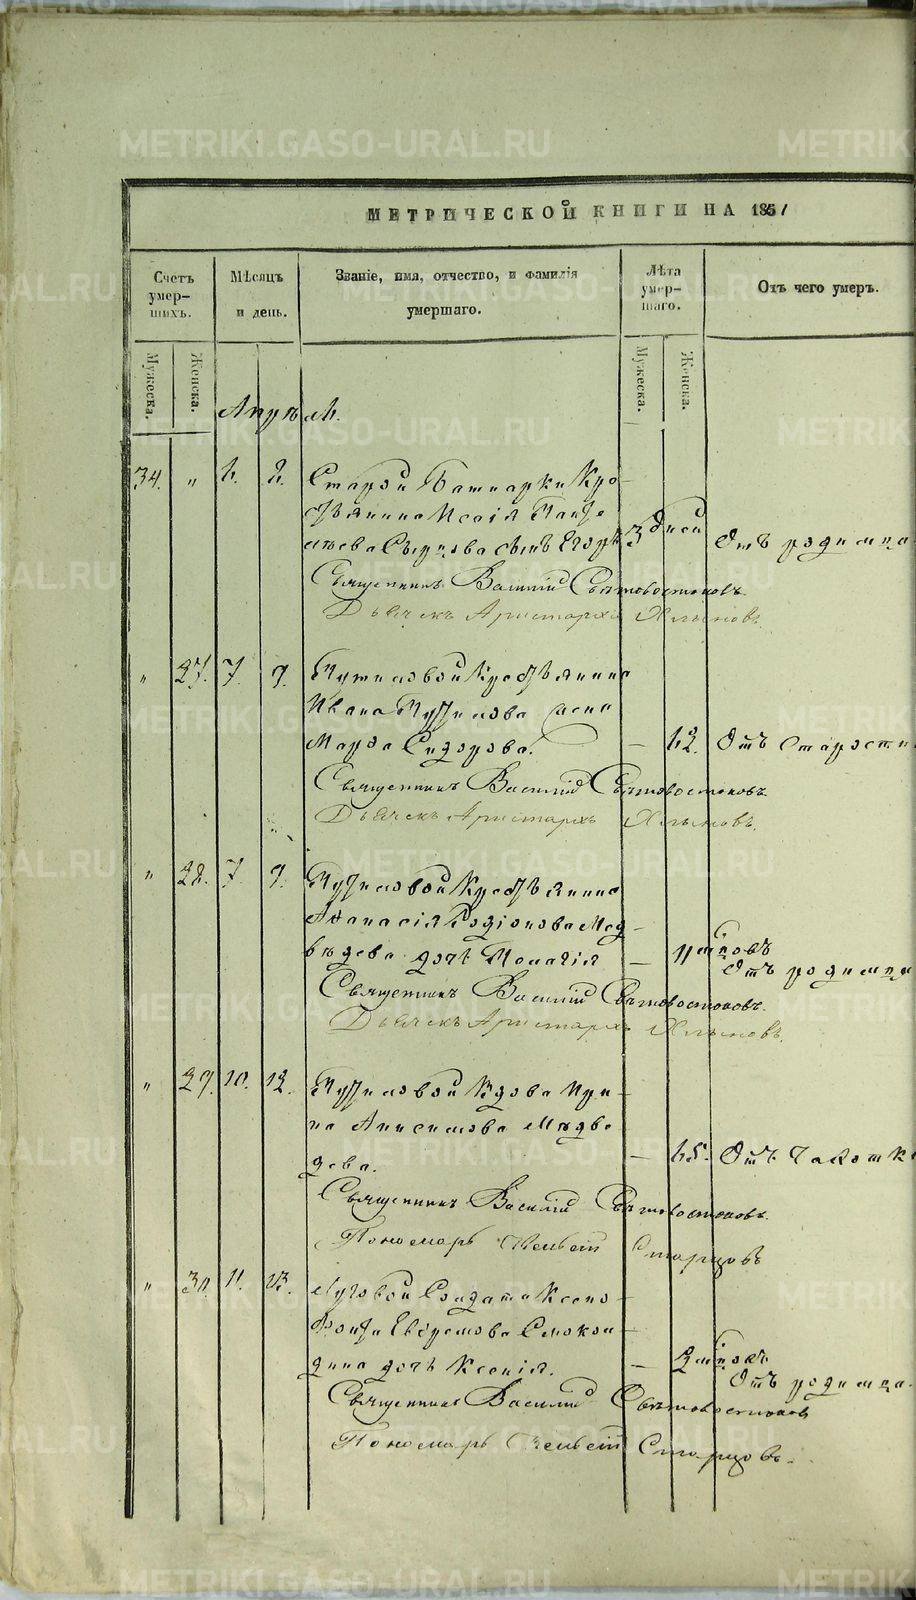 METRIKI.GASO-URAL.RU
МЕТРИЧЕСКОЙ КНИГИ НА 1851
Счетъ умер-шихъ.
Мѣсяцъ и день.
Званіе, имя, отчество, и фамилія умершаго.
Лѣта умер-шаго.
Отъ чего умеръ.
Мужеска.
Женска.
Мужеска.
Женска.
Апрѣль.
34. „
Старой Башкарки Кре-
стьянина Исаія Панте
леева сынъ Егоръ 3 дней Отъ родимца
Священникъ Василій Святовостоковъ.
Дьячекъ Аристархъ Хлыновъ.
„ 27. 7. 9. Путиловой Крестьянина
Ивана Путилова жена
Марѳа Сидорова. — Отъ старости
Священникъ Василій Святовостоковъ.
Дьячекъ Аристархъ Хлыновъ.
„ 28. 7. 9. Путиловой Крестьянина
Аѳанасія Родіонова Мед-
вѣдева дочь Пелагія — Отъ родимца
Священникъ Василій Святовостоковъ.
Дьячекъ Аристархъ Хлыновъ.
„ 29. 10. 12. Путиловой Вдова Ири-
на Анисимова Медвѣ
дева. — Отъ Чахотки
Священникъ Василій Святовостоковъ.
Пономарь Старцовъ
„ 30. 11. 13. Луговой Солдата Ксено-
фонта Ефремова
дочь Ксенія. — Отъ родимца.
Священникъ Василій Святовостоковъ
Пономарь Старцовъ.